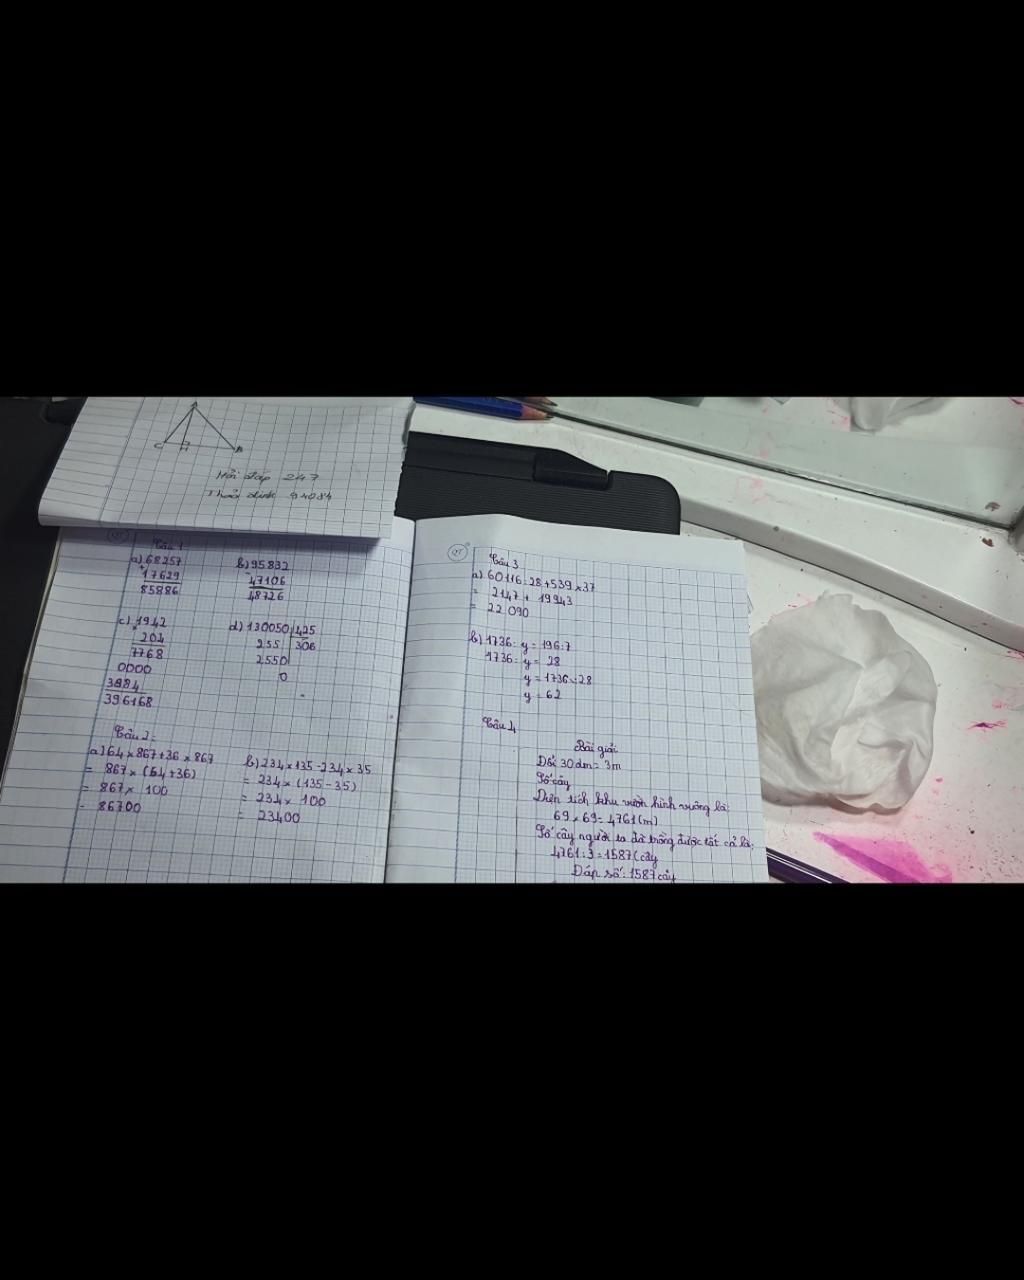 A
C H B
Hỏi đáp 247
Thái dinh 94084
QT
Câu 1
a) 68257
+
17629
85886
b) 95832
-
47106
48726
c) 1942
×
204
7768
0000
3884
396168
d) 130050 425
255 306
2550
0
Câu 2:
a) 64 × 867 + 36 × 867
= 867 × (64 + 36)
= 867 × 100
= 86700
b) 234 × 135 - 234 × 35
= 234 × (135 - 35)
= 234 × 100
= 23400
QT
Câu 3
a) 60116 : 28 + 539 × 37
= 2147 + 19943
= 22 090
b) 1736 : y = 196 : 7
1736 : y = 28
y = 1736 : 28
y = 62
Câu 4
Bài giải
Đổi: 30 dm = 3m
Số cây
Diện tích khu vườn hình vuông là:
69 × 69 = 4761 (m)
Số cây người ta đã trồng được tất cả là:
4761 : 3 = 1587 (cây
Đáp số: 1587 cây